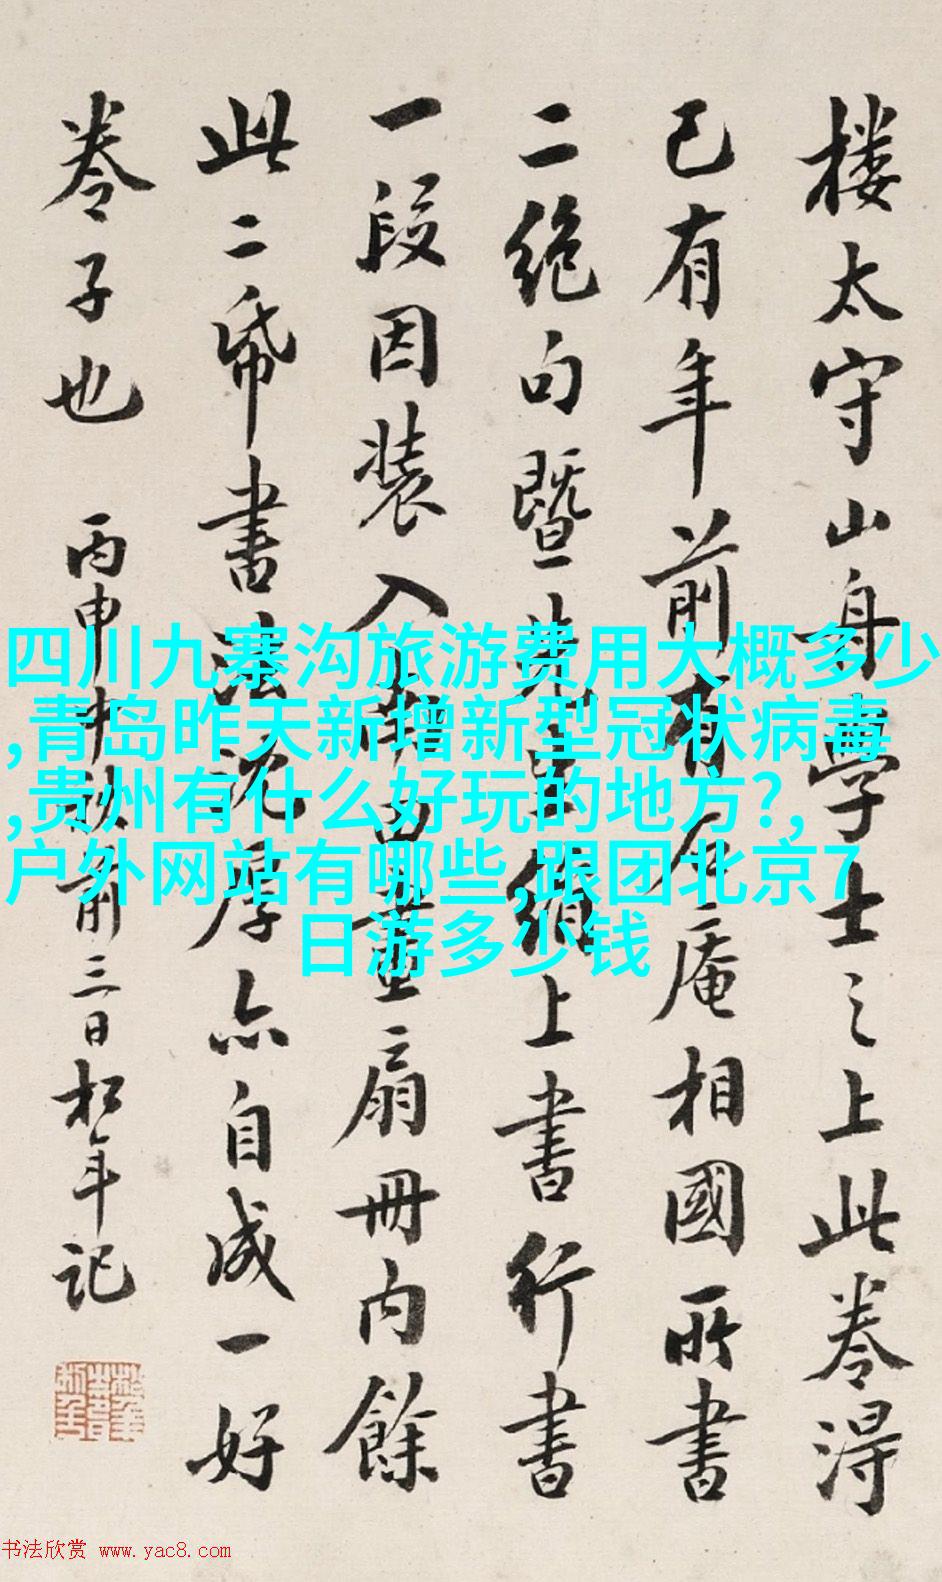 楼太守山身學士之上此卷得
已有年前有石庵相國所書
二絶句暨朱自絹上書行書
一段因装入南田畫扇冊内餘
此二帋書法沉厚亦自成一好
卷子也
丙申中秋前三日松年記
四川九寨沟旅游费用大概多少
,青岛昨天新增新型冠状病毒
,贵州有什么好玩的地方?,
户外网站有哪些,跟团北京7
日游多少钱
书法欣赏 www.yac8.com